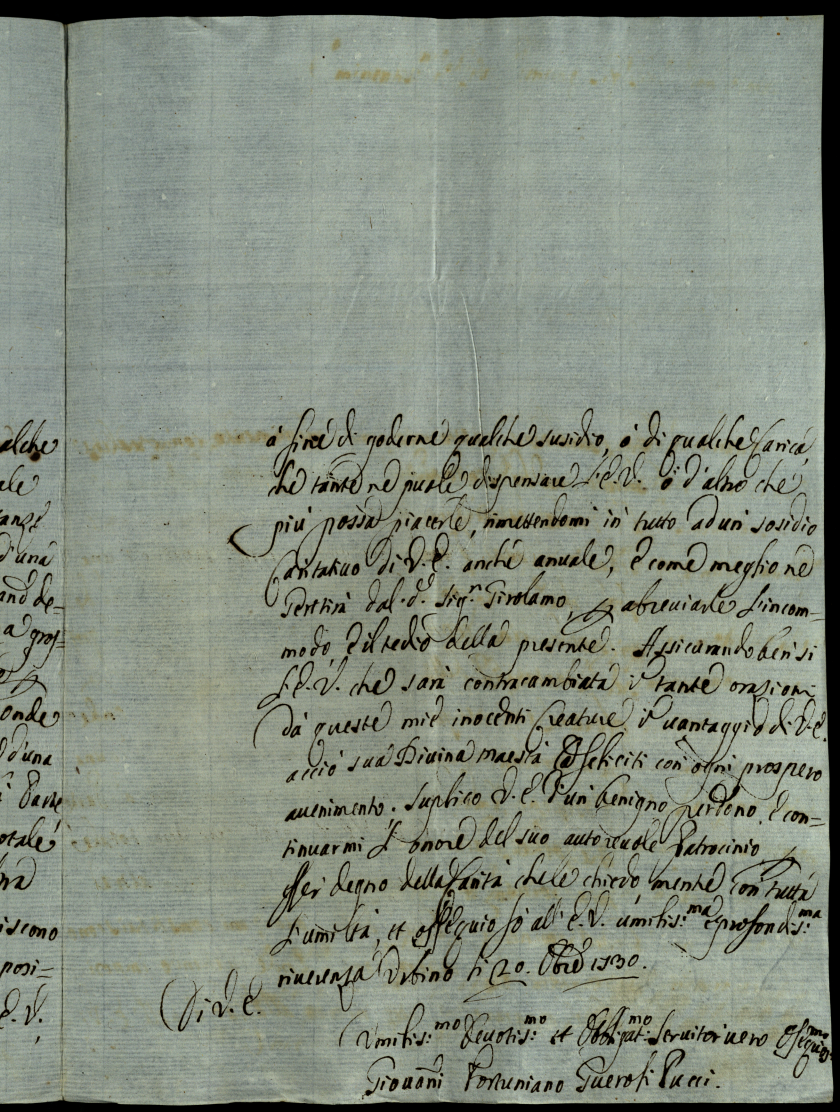 alche
ale
tanze
d'una
and de-
a gros-
onde
d'una
Parte
otale
iscono
posi=
E. V.
à fine di goderne qualche susidio, ò di qualche Carica,
che tante ne puole dispensare L'E.V. ò d'altro che
più possa piacerle, rimettendomi in tutto ad un sosidio
Caritativo di V.E. anche anuale, è come meglio ne
sentirà dal d.º Sig.r Girolamo, abreviarle l'incom=
modo è il tedio della presente. Assicurando bensi
L'E.V. che sarà contracambiata tante orazioni
da queste mie inocenti Creature vantaggio di V.E.
acciò sua Divina maestà feliciti con ogni prospero
avenimento. Suplico V.E. d'un benigno perdono, è con=
tinuarmi L'onore del suo autorevole Patrocinio
esser degno della Carità che le chiedo mentre con tutta
L'umiltà, et ossequio fò all'E.V. umilis:ma è profondis:ma
riverenza Urbino li 20. Obre 1730.
Di V.E.
Umilis:mo Devotis:mo et Obbligat:mo Servitor vero Ossequios:mo
Giovani Fortuniano Pucci.